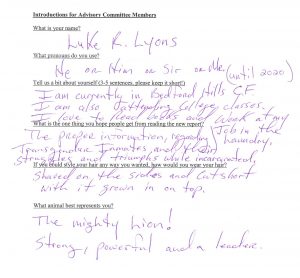 Introductions for Advisory Committee Members
What is your name?
Luke R. Lyons
What pronouns do you use?
He or Him or Sir or Mr. (until 2020)
Tell us a bit about yourself (3-5 sentences, please keep it short!)
I am currently in Bedford Hills C.F
I am also attending College classes.
I love to Read books and work at my
Job in the
What is the one thing you hope people get from reading the new report?
The proper information, regarding
Transgender Inmates and their
Struggles and triumphs while incarcerated,
If you could style your hair any way you wanted, how would you wear your hair?
Shaved on the sides and cut short
with it grown in on top.
What animal best represents you?
The mighty Lion!
Strong, powerful and a leader.